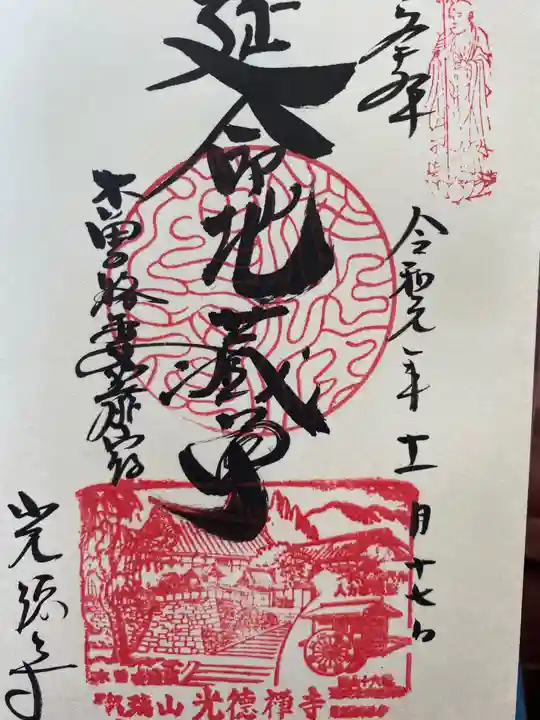 奉拝
令和元年十一月十七日
延命地蔵尊
木曽路妻籠宿
光徳寺
瑞山 光德禅寺